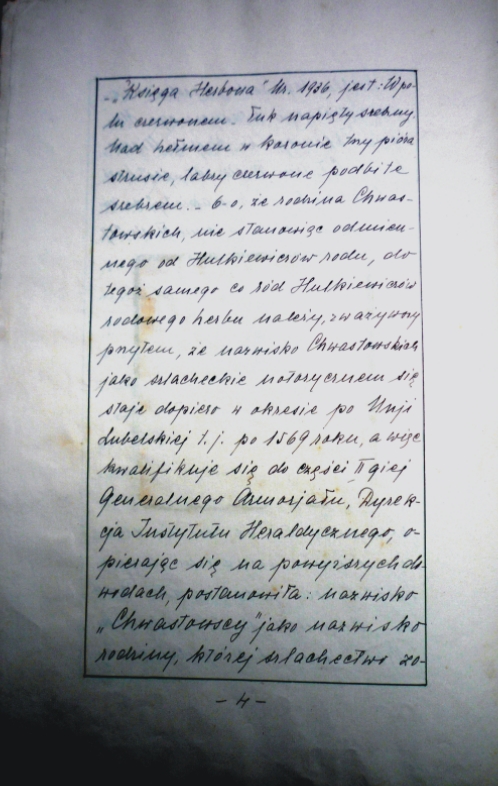 - „Księga Herbowa" Nr. 1936, jest: W po-
lu czerwonem. Łuk napięty srebrny.
Nad hełmem w koronie trzy pióra
strusie, labry czerwone podbite
srebrem. - 6-o, że rodzina Chwas-
towskich, nie stanowiąc odmien-
nego od Hulkiewiczów rodu, do
tegoż samego co ród Hulkiewiczów
rodowego herbu należy, zważywszy
przytem, że nazwisko Chwastowskich,
jako szlacheckie notorycznem się
staje dopiero w okresie po Unji
Lubelskiej t.j. po 1569 roku, a więc
kwalifikuje się do części II giej
Generalnego Armorjału, Dyrek-
cja Instytutu Heraldycznego, o-
pierając się na powyższych do-
wodach, postanowiła: nazwisko
„Chwastowscy" jako nazwisko
rodziny, której szlachectwo zo-
- 4 -